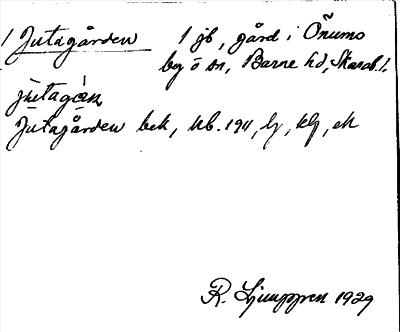 1 Jutagården 1 jb, gård i Önums
by o sn, Barne hd, Skarab. l.
jùtagán
Jutagården bek, Ub. 1911, lj, klj, ek
R. Ljunggren 1929